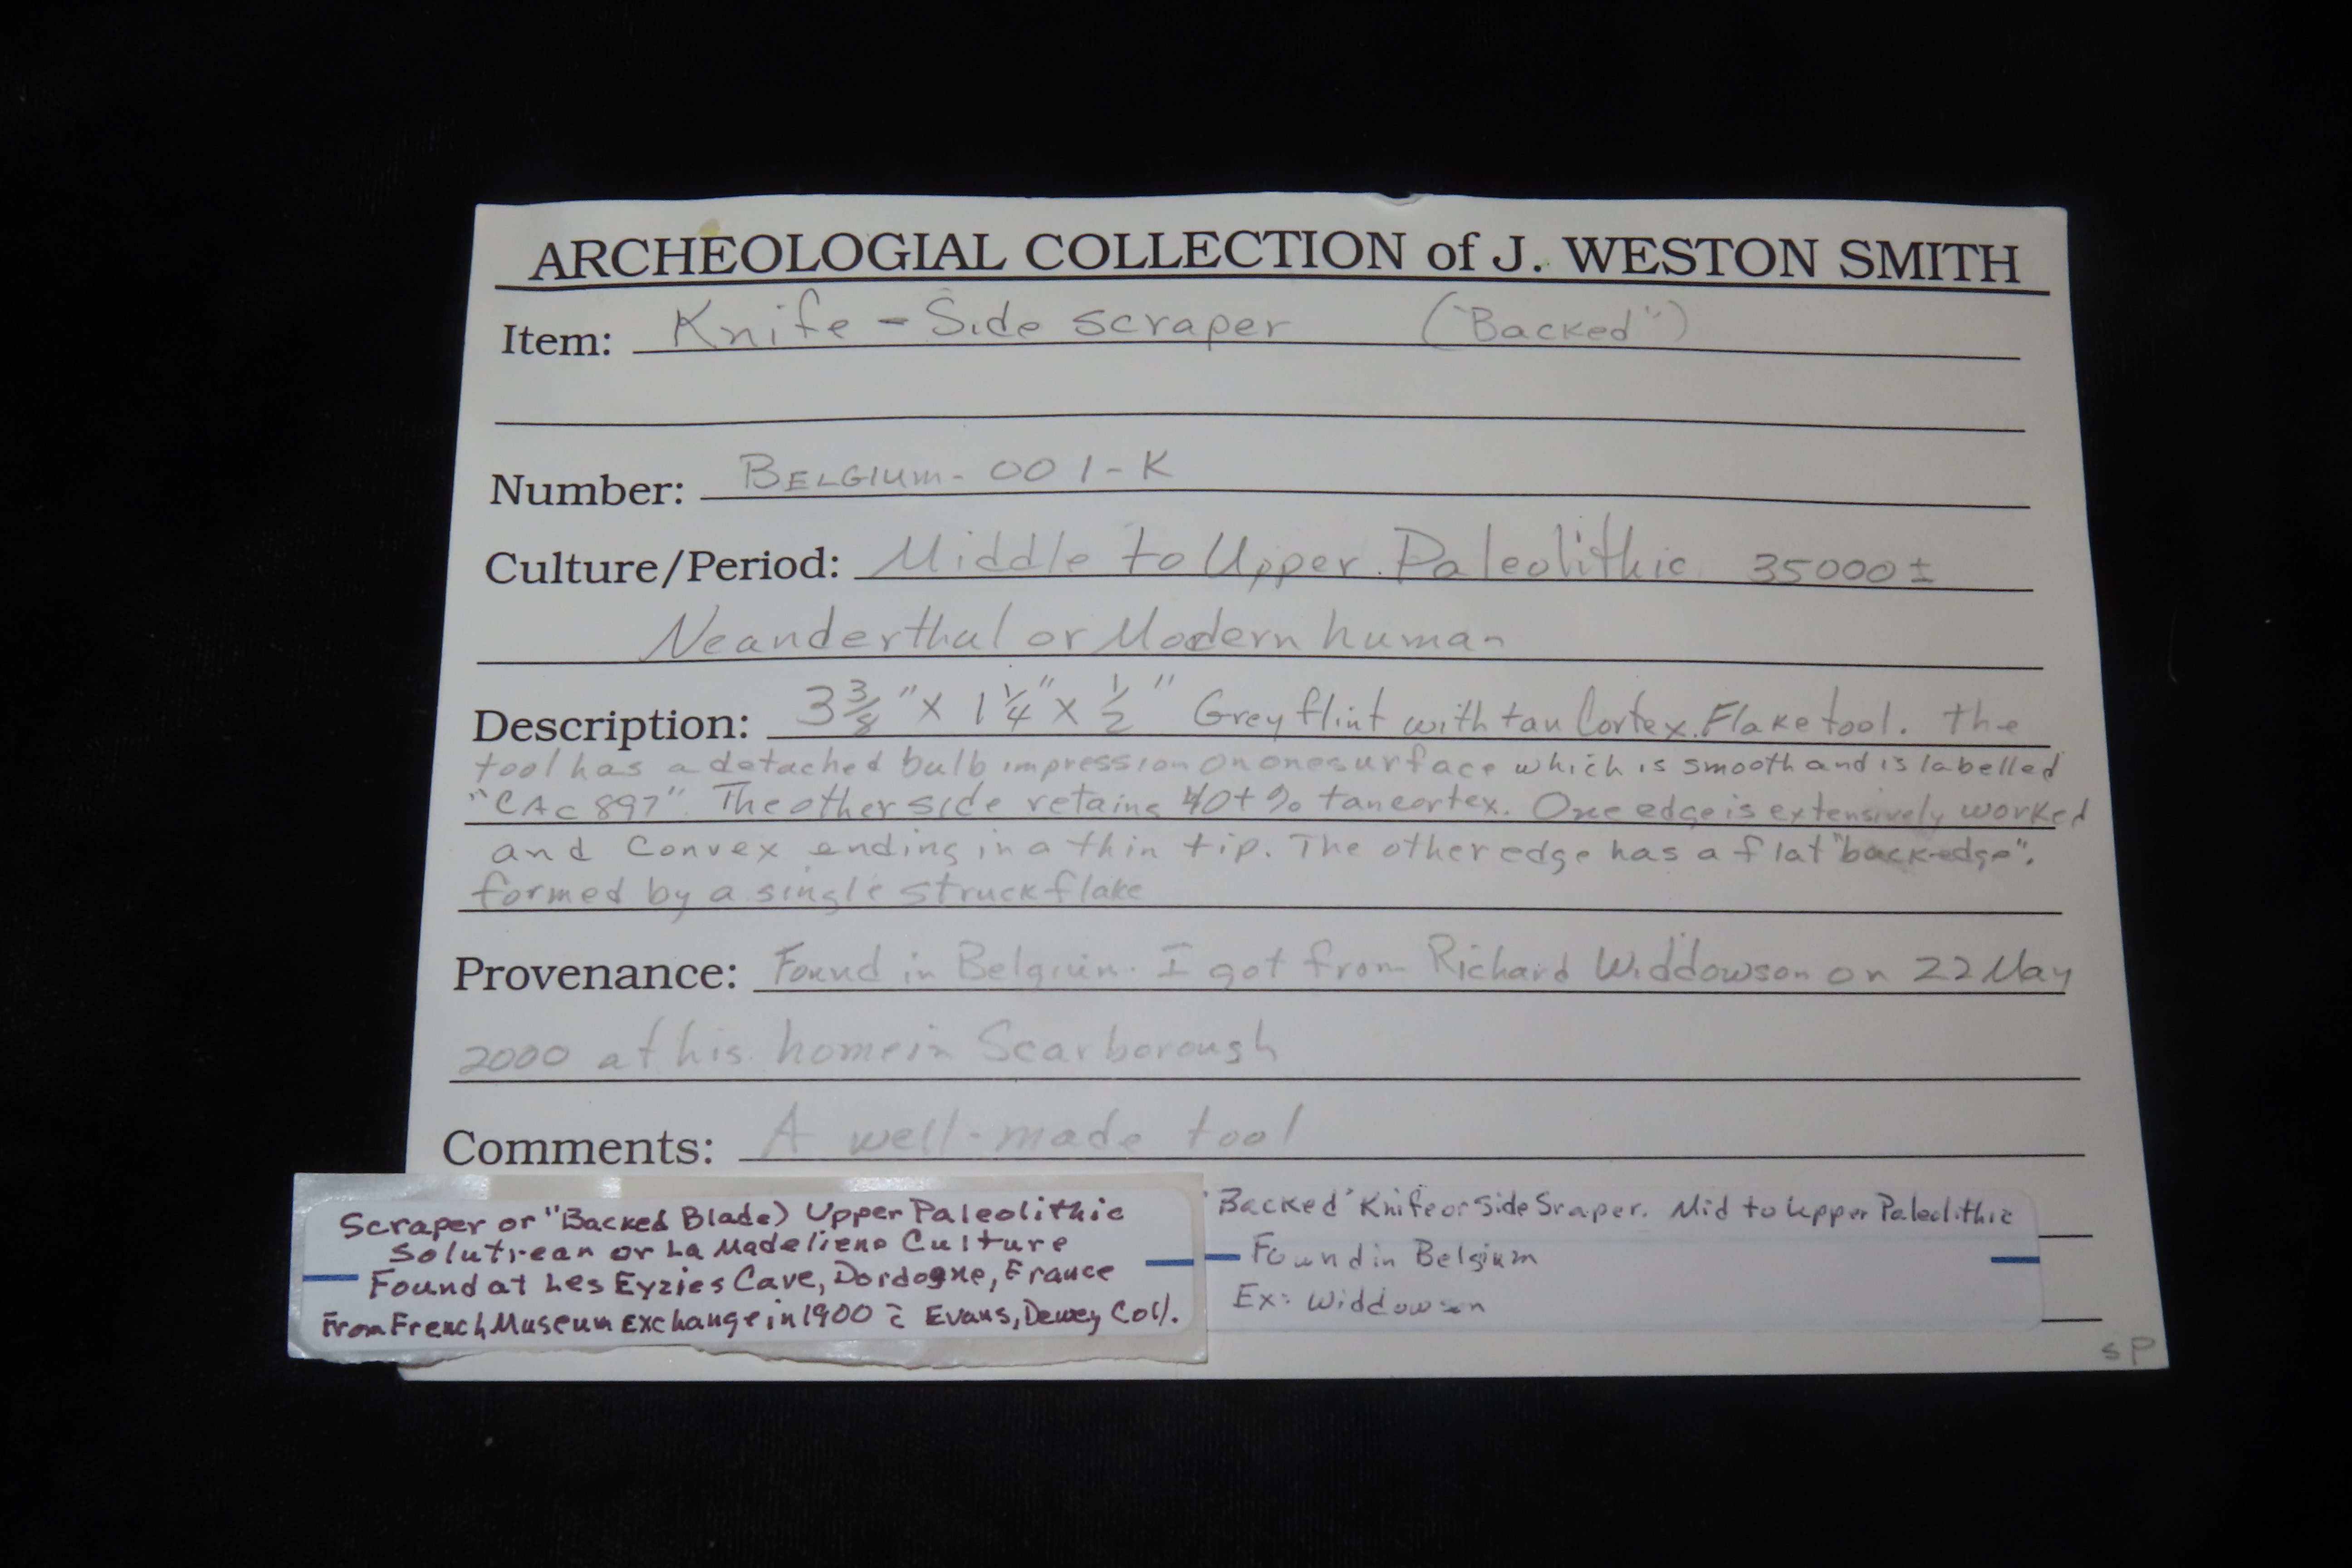 ARCHEOLOGIAL COLLECTION of J. WESTON SMITH
Item: Knife - Side scraper ("Backed")
Number: BELGIUM-001-K
Culture/Period: Middle to Upper Paleolithic 35000 ±
Neanderthal or Modern human
Description: 3 3/8" x 1 1/4" x 1/2" Grey flint with tan Cortex. Flake tool. The
tool has a detached bulb impression on one surface which is smooth and is labelled
"CAC 897". The other side retains 40+% tan cortex. One edge is extensively worked
and convex ending in a thin tip. The other edge has a flat "back-edge".
formed by a single struck flake
Provenance: Found in Belgium. I got from Richard Widdowson on 22 May
2000 at his home in Scarborough
Comments: A well-made tool
Scraper or "Backed Blade) Upper Paleolithic
Solutrean or La Madeliene Culture
Found at Les Eyzies Cave, Dordogne, France
From French Museum exchange in 1900 c̄ Evans, Dewey Coll.
"Backed" Knife or Side Sraper. Mid to Upper Paleolithic
Found in Belgium
Ex: Widdowson
SP